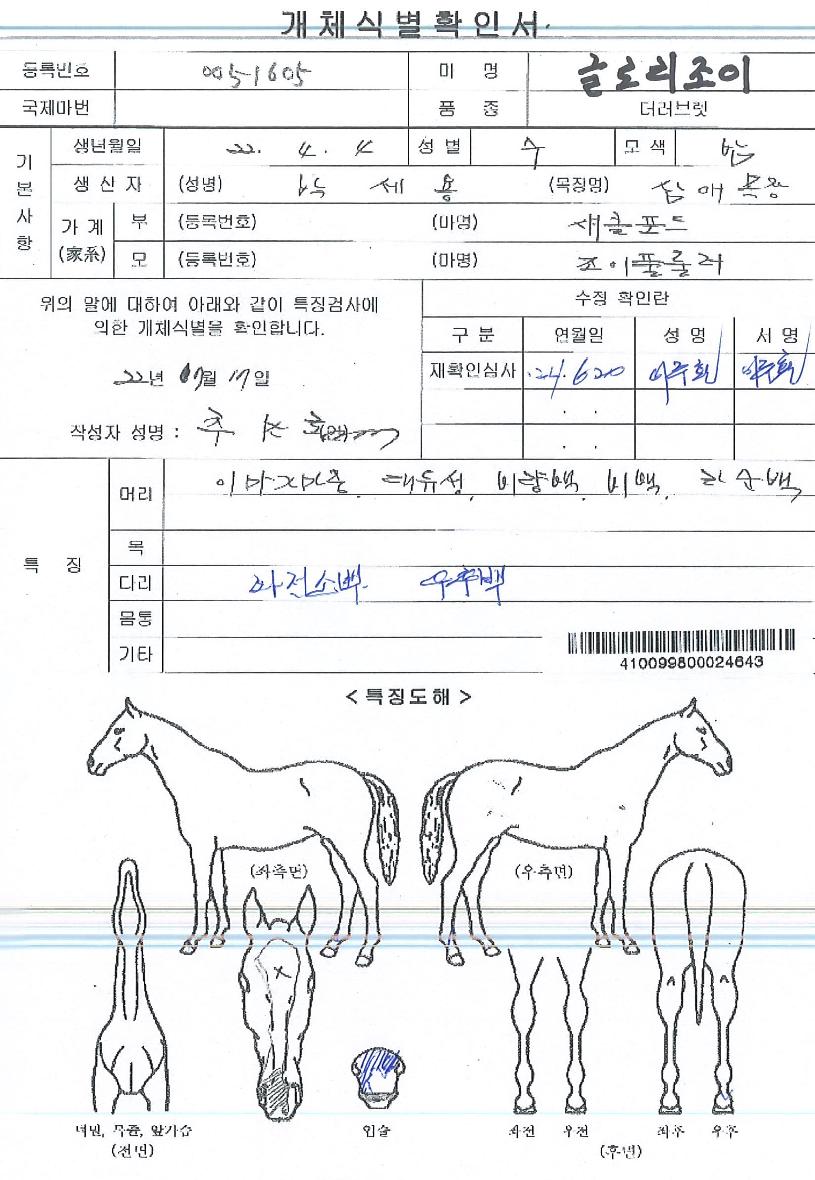 개체식별확인서
등록번호 005-1605 미 명 글로리조이
국제마번 품 종 더러브렛
기본사항
생년월일 22. 4. 4 성별 수 모색 밤
생산자 (성명) 박세용 (목장명) 삼애목장
가계 (家系) 부 (등록번호) (마명) 섀클포드
모 (등록번호) (마명) 조이풀룰러
위의 말에 대하여 아래와 같이 특징검사에
의한 개체식별을 확인합니다.
22년 월 17일
작성자 성명 :
수정 확인란
구분 연월일 성명 서명
재확인심사 24.6.20
특 징
머리 이마 대유성, 비량백, 비백,
목
다리 좌전소백. 우후백
몸통
기타
410099800024643
<특징도해>
(좌측면) (우측면)
턱밑, 목줄, 앞가슴
(전면)
입술
좌전 우전 좌후 우후
(후면)